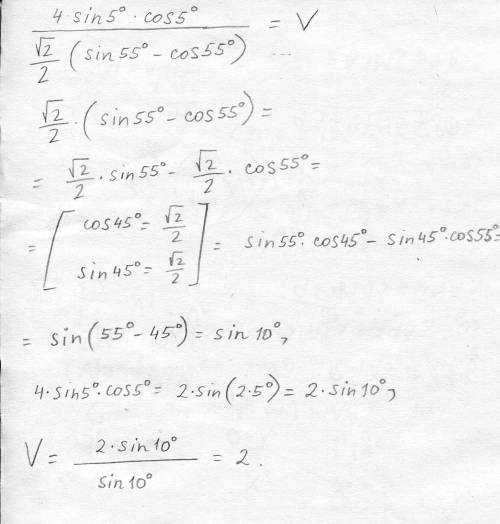 4·sin5°·cos5° / (√2/2 (sin55°-cos55°)) = V
√2/2·(sin55°-cos55°)=
= √2/2·sin55°- √2/2·cos55°=
=[cos45°=√2/2
sin45°=√2/2] = sin55°·cos45°- sin45°·cos55°=
= sin(55°-45°)= sin10°,
4·sin5°·cos5°= 2·sin(2·5°)= 2·sin10°,
V= 2·sin10° / sin10° = 2.